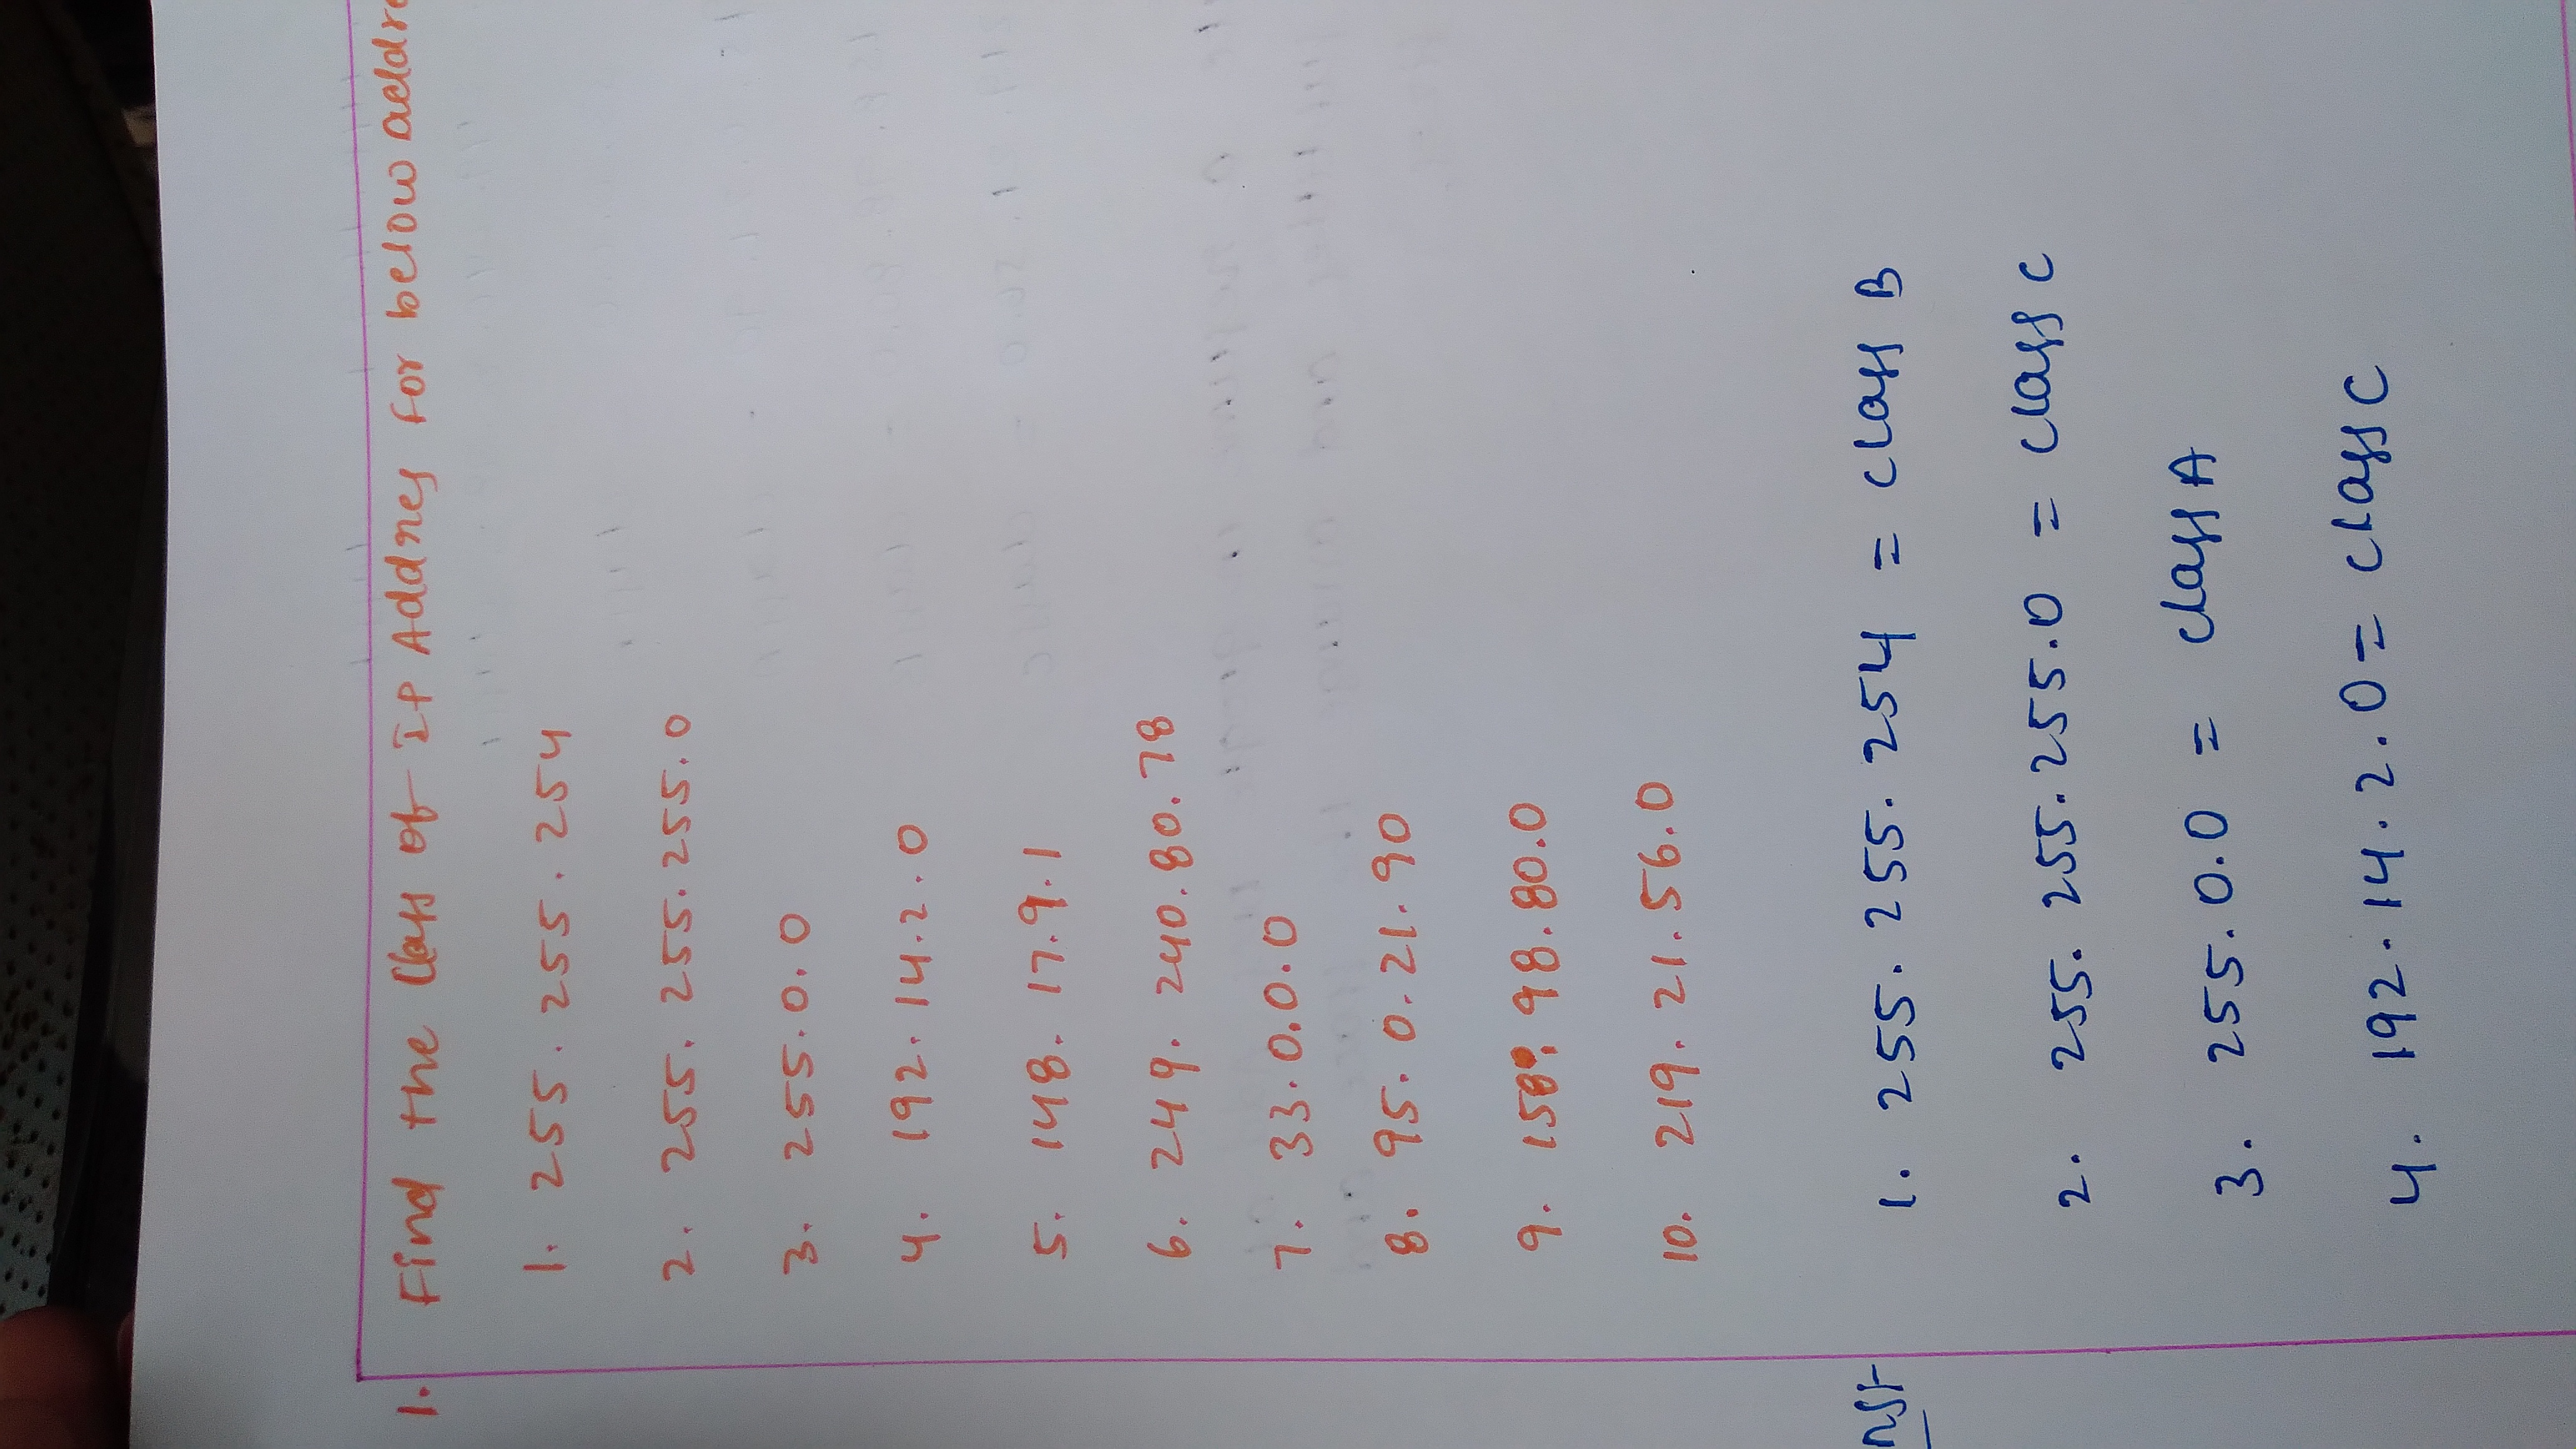 1. Find the Class of IP Addres For below addre
1. 255.255.254
2. 255.255.255.0
3. 255.0.0
4. 192.14.2.0
5. 148.17.9.1
6. 249.240.80.78
7. 33.0.0.0
8. 95.0.21.90
9. 158.98.80.0
10. 219.21.56.0
1. 255.255.254 = class B
2. 255.255.255.0 = class C
3. 255.0.0 = class A
4. 192.14.2.0 = class C